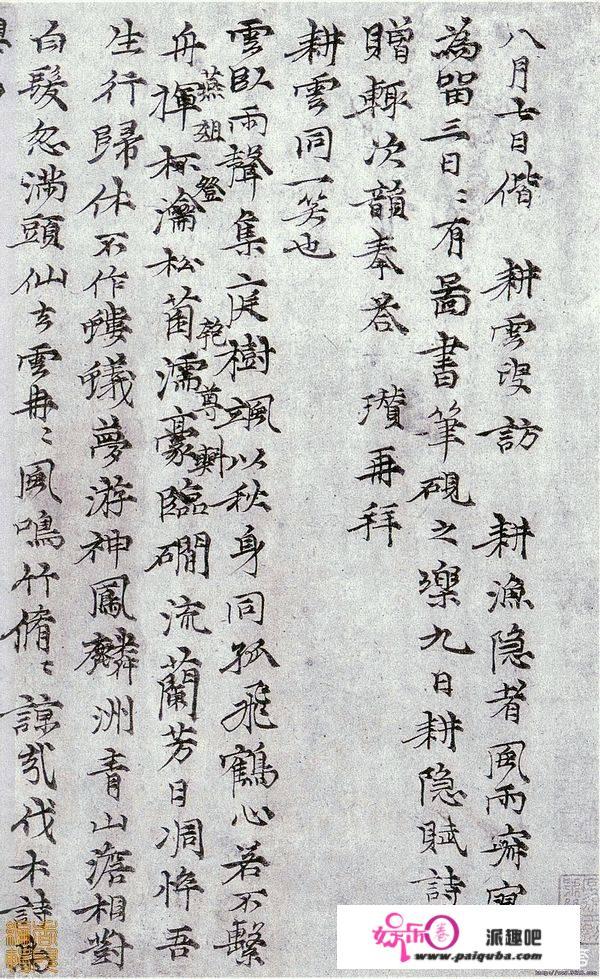 八月七日偕 耕雲叟訪 耕漁隱者風雨
為留三日〻有圖書筆硯之樂九日耕隱賦詩
贈輒次韻奉答 瓚再拜
耕雲同一笑也
雲臥雨聲集庭樹颯以秋身同孤飛鶴心若不繫
燕俎登 匏尊斟
舟揮杯瀹松菌濡豪臨磵流蘭芳日凋悴吾
生行歸休不作螻蟻夢游神鳳麟洲青山澹相對
白髮忽滿頭仙去雲冉〻風鳴竹脩〻諒哉伐木詩鳥
派趣吧
www.paiquba.com